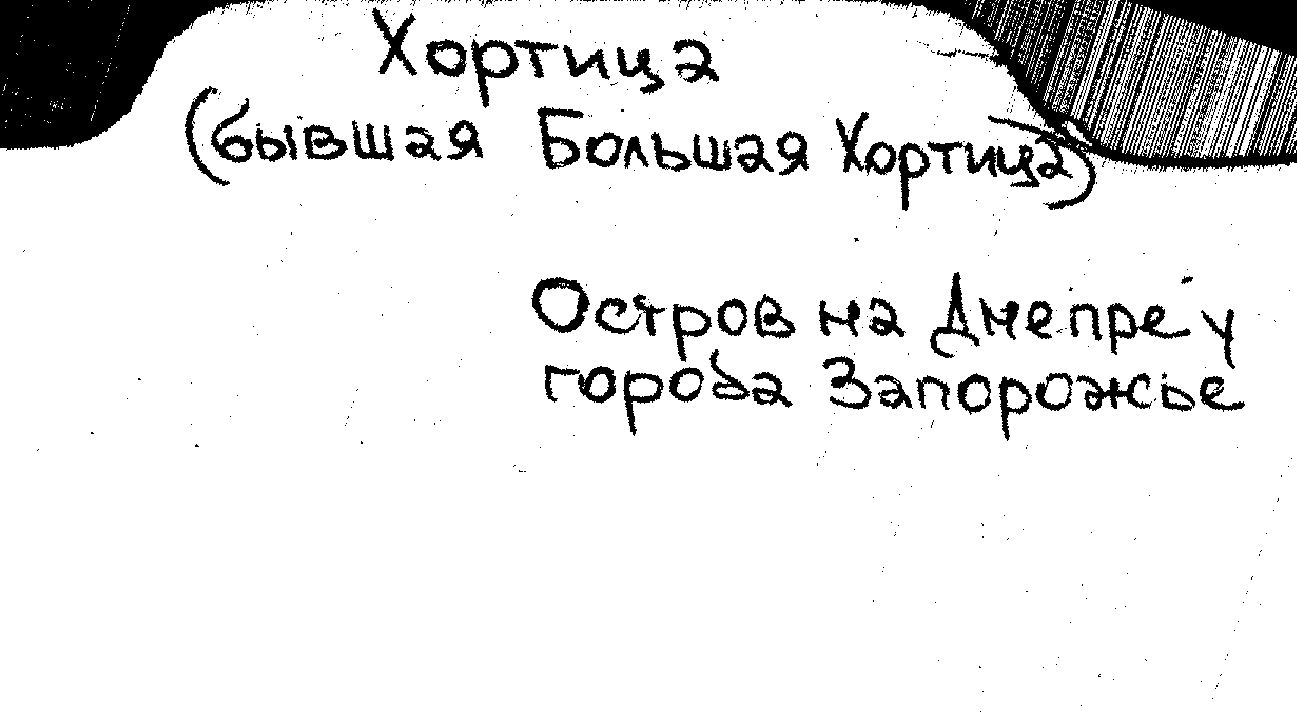 Хортица
(бывшая Большая Хортица)
Остров на Днепре у
города Запорожье